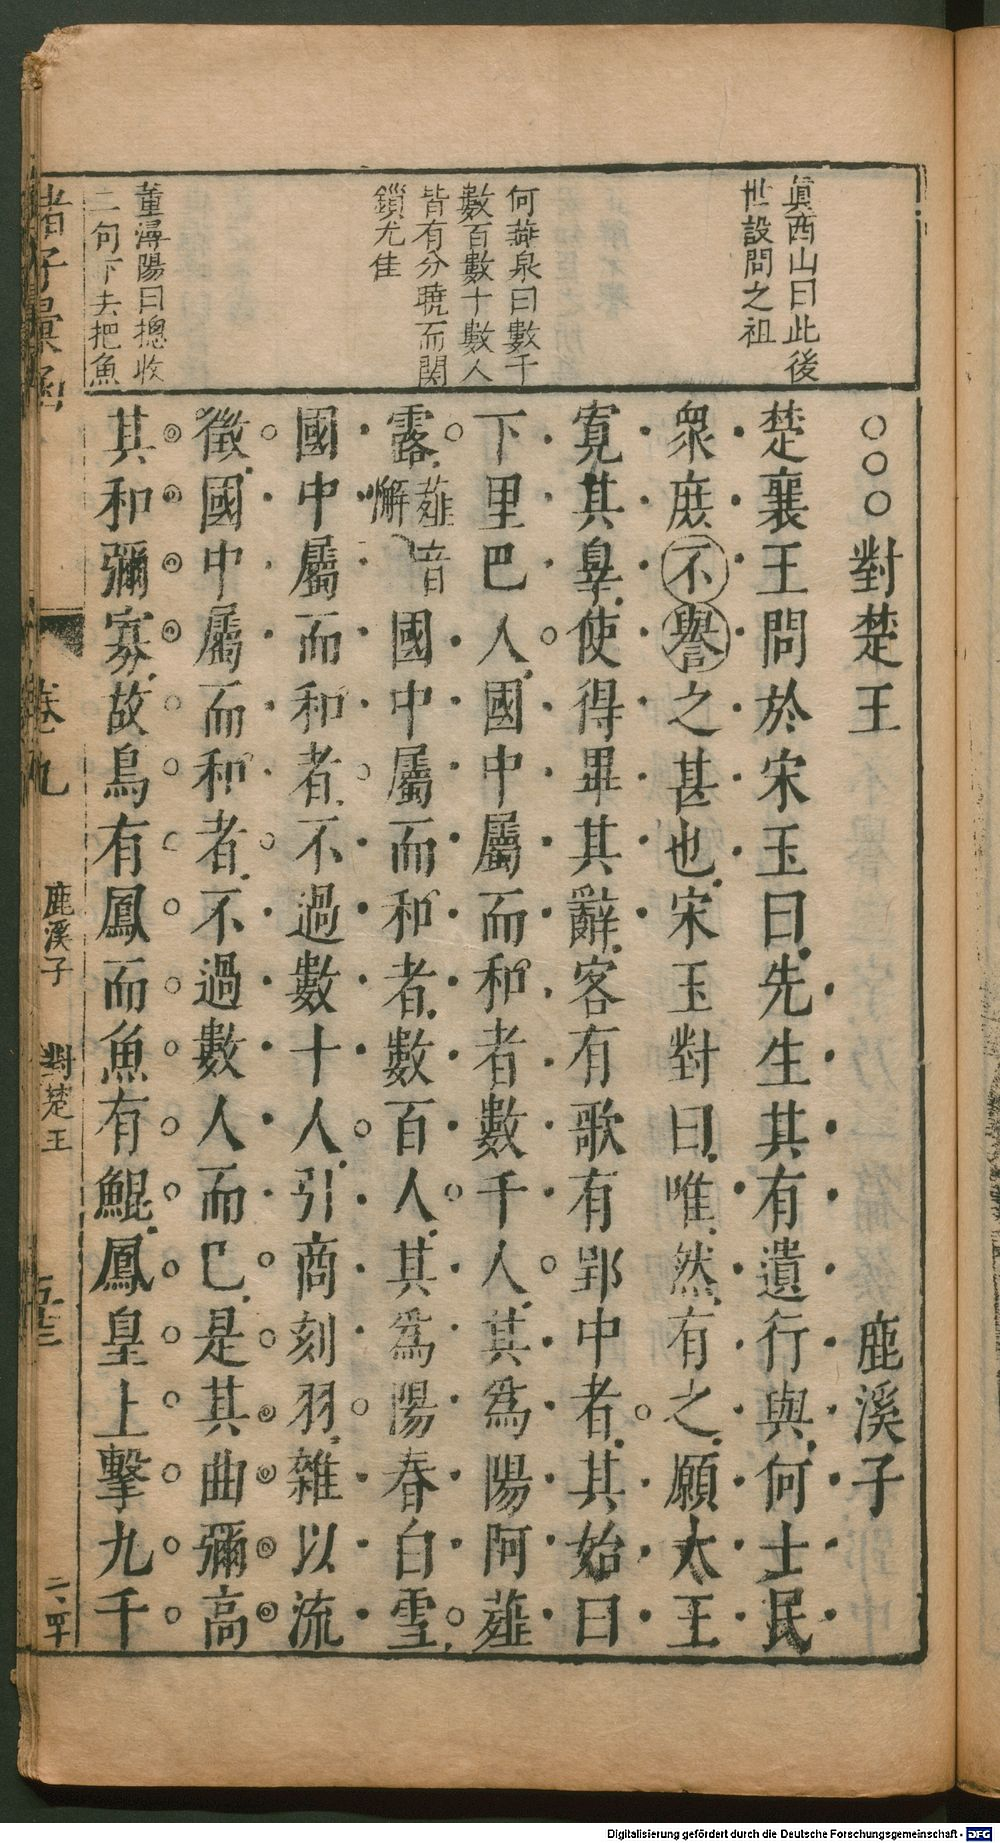 眞西山曰此後
世設問之祖
何燕泉曰數千
數百數十數人
皆有分曉而関
鎖尤佳
董潯陽曰摠收
二句下夫把魚
○○○對楚王 鹿溪子
楚襄王問於宋玉曰先生其有遺行與何士民
衆庶不譽之甚也宋玉對曰唯然有之願大王
寛其辠使得畢其辭客有歌有郢中者其始曰
下里巴人國中屬而和者數千人其爲陽阿薤
露薤音懈國中屬而和者數百人其爲陽春白雪
國中屬而和者不過數十人引商刻羽雜以流
徵國中屬而和者不過數人而已是其曲彌高
其和彌寡故鳥有鳳而魚有鯤鳳皇上擊九千
諸子彙函
卷九
鹿溪子 對楚王
五十三
Digitalisierung gefördert durch die Deutsche Forschungsgemeinschaft - DFG